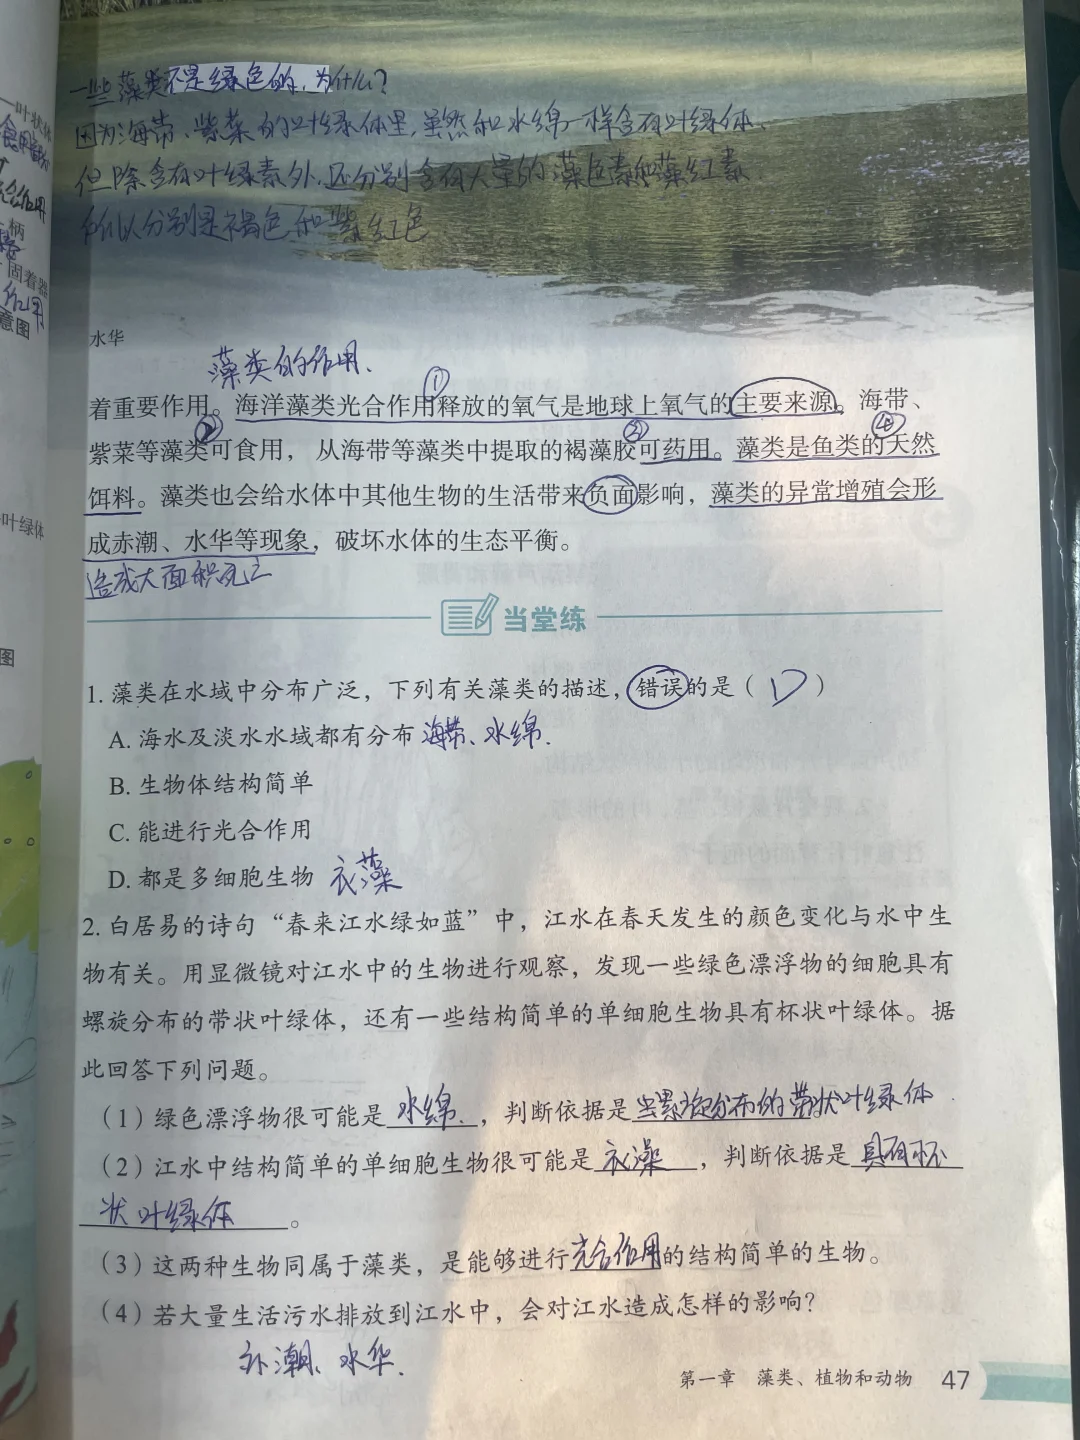 一些藻类不是绿色的,为什么?
因为海带、紫菜的叶绿体里,虽然和水绵一样含有叶绿体、
但除含有叶绿素外,还分别含有大量的藻色素和藻红素.
所以分别是褐色和紫红色
一叶状体
柄
固着器
意图
叶绿体
图
水华
藻类的作用.
①
着重要作用。海洋藻类光合作用释放的氧气是地球上氧气的主要来源。海带、
② ③ ④
紫菜等藻类可食用,从海带等藻类中提取的褐藻胶可药用。藻类是鱼类的天然
饵料。藻类也会给水体中其他生物的生活带来负面影响,藻类的异常增殖会形
成赤潮、水华等现象,破坏水体的生态平衡。
造成大面积死亡
当堂练
1. 藻类在水域中分布广泛,下列有关藻类的描述,错误的是( D )
A. 海水及淡水水域都有分布 海带、水绵.
B. 生物体结构简单
C. 能进行光合作用
D. 都是多细胞生物 衣藻
2. 白居易的诗句“春来江水绿如蓝”中,江水在春天发生的颜色变化与水中生
物有关。用显微镜对江水中的生物进行观察,发现一些绿色漂浮物的细胞具有
螺旋分布的带状叶绿体,还有一些结构简单的单细胞生物具有杯状叶绿体。据
此回答下列问题。
(1)绿色漂浮物很可能是水绵.,判断依据是螺旋分布的带状叶绿体.
(2)江水中结构简单的单细胞生物很可能是衣藻,判断依据是具有杯
状叶绿体。
(3)这两种生物同属于藻类,是能够进行光合作用的结构简单的生物。
(4)若大量生活污水排放到江水中,会对江水造成怎样的影响?
赤潮、水华.
第一章 藻类、植物和动物 47